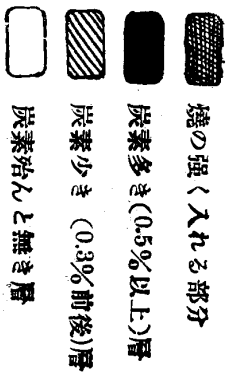 燒の强く入れる部分
炭素多き(0.5%以上)層
炭素少き (0.3%前後)層
炭素殆んど無き層